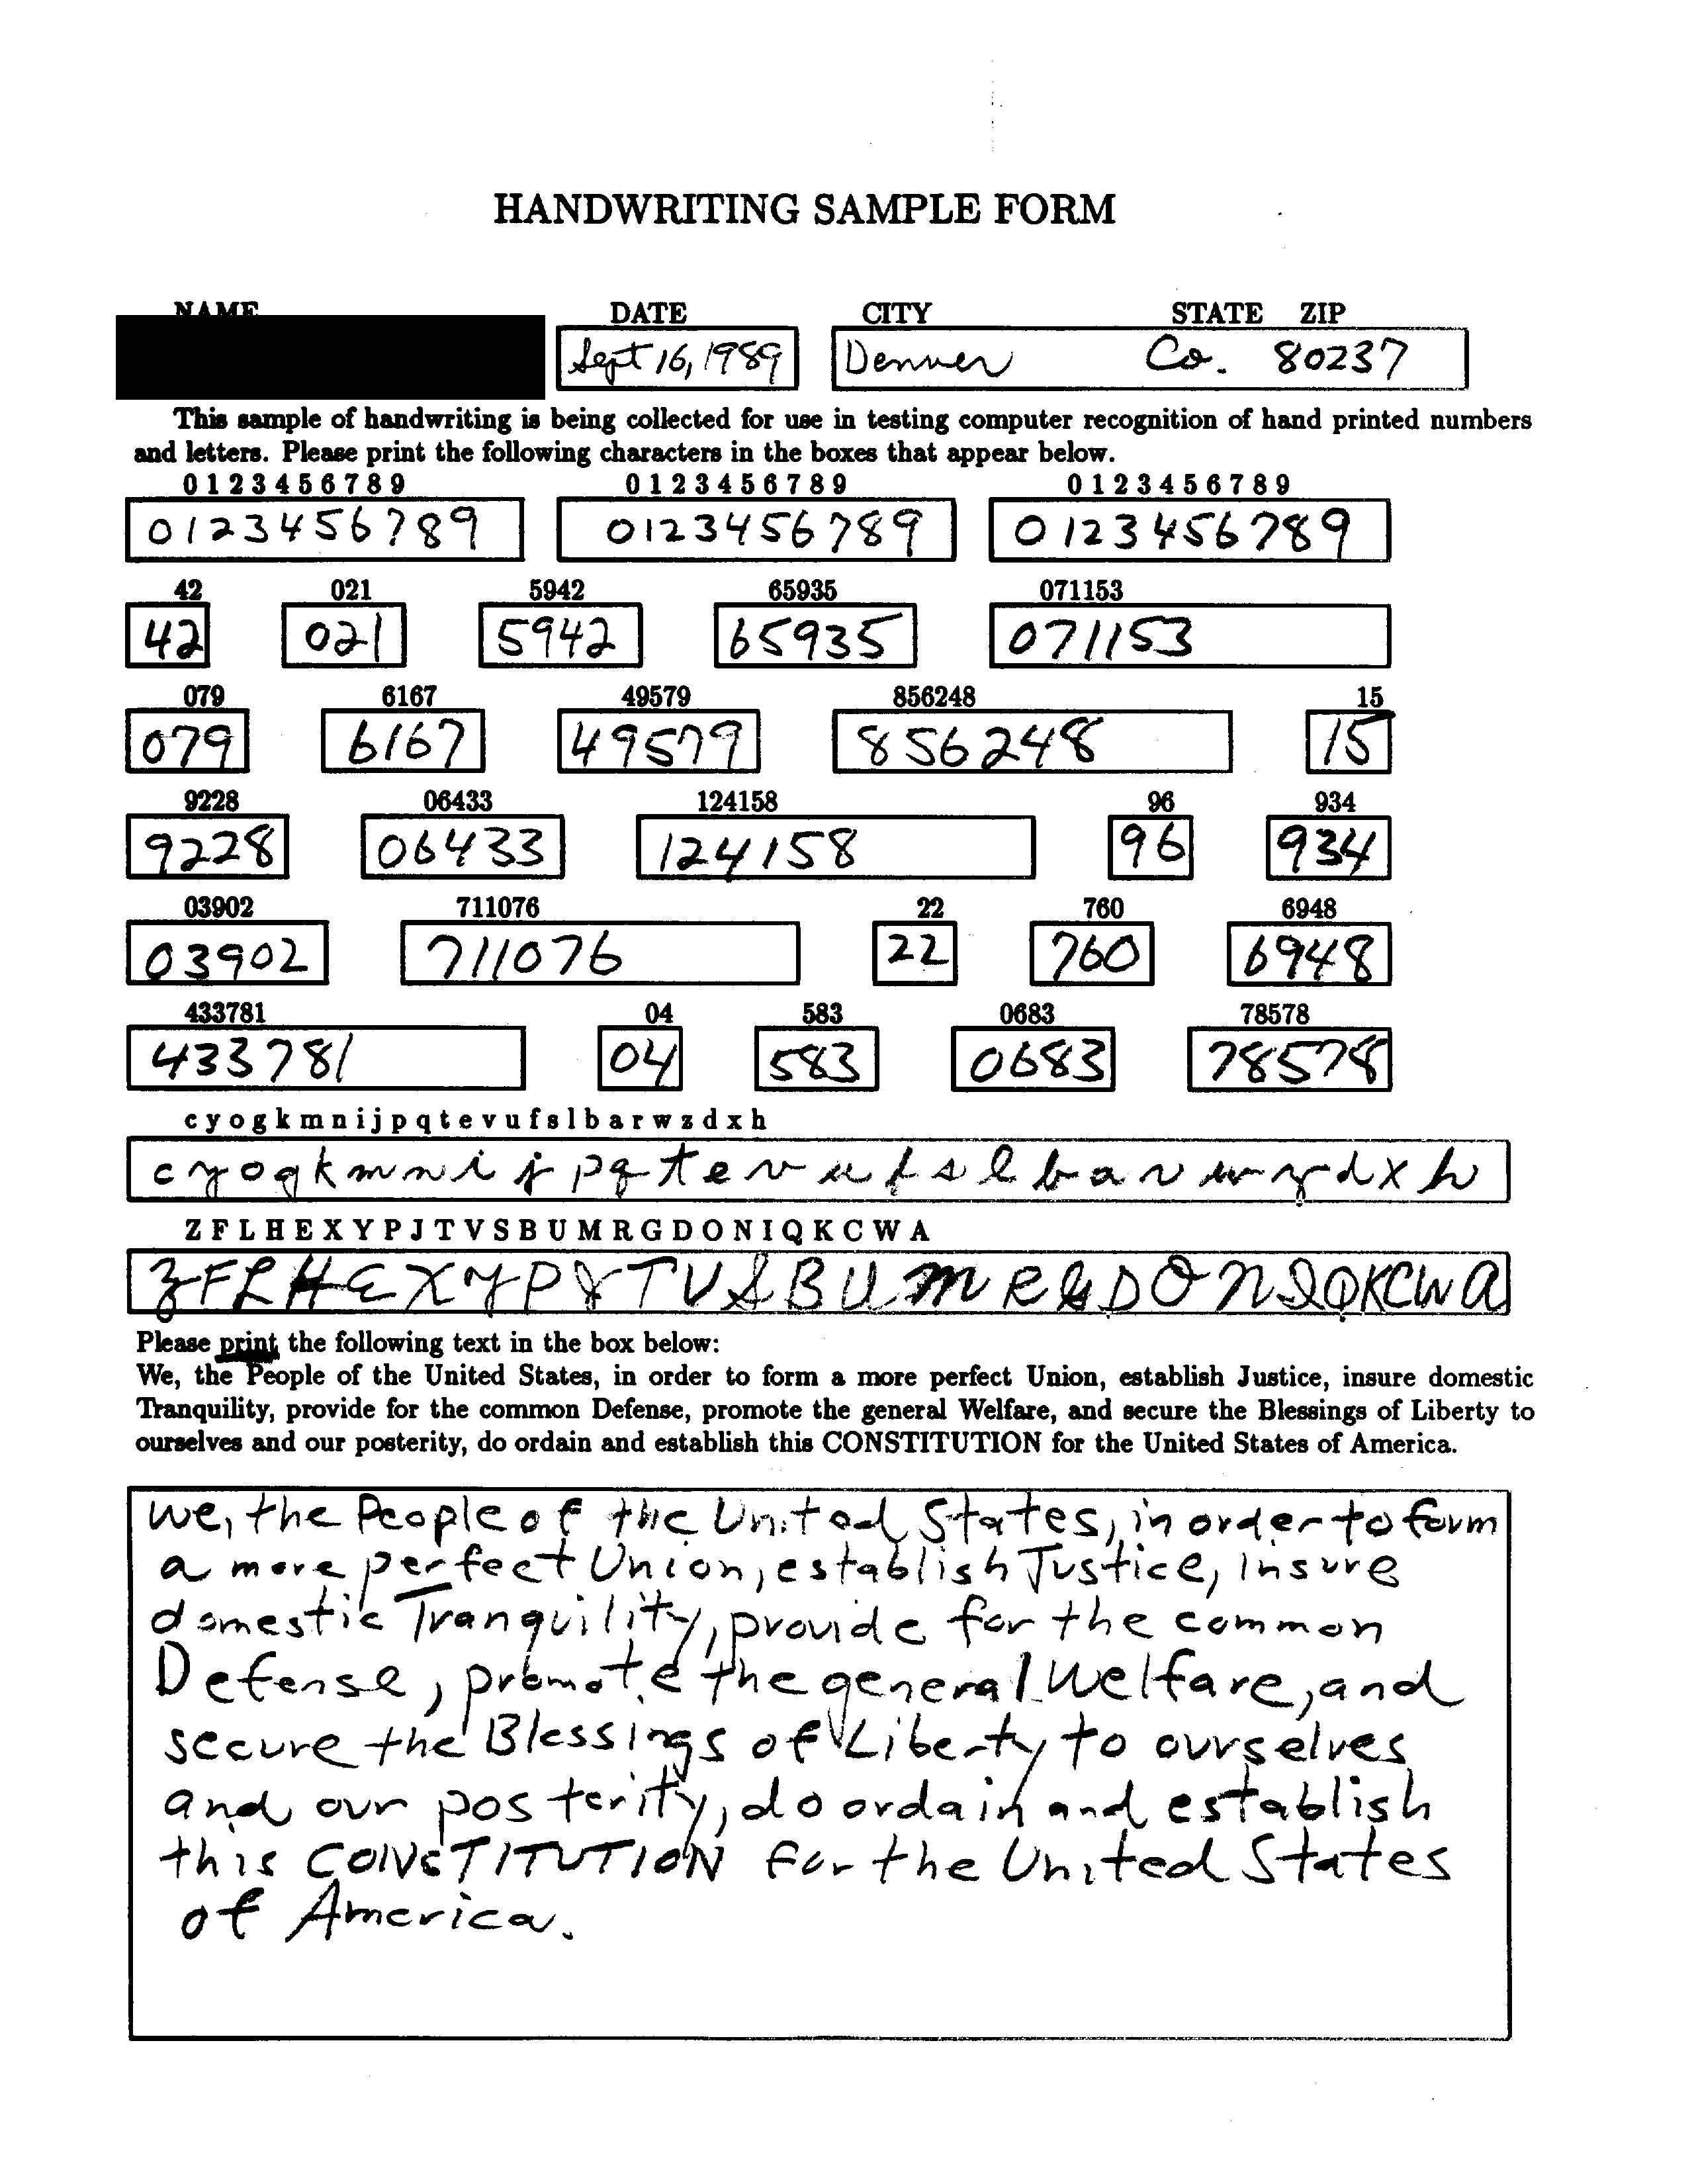 HANDWRITING SAMPLE FORM
NAME DATE CITY STATE ZIP
Sept 16, 1989 Denver Co. 80237
This sample of handwriting is being collected for use in testing computer recognition of hand printed numbers
and letters. Please print the following characters in the boxes that appear below.
0 1 2 3 4 5 6 7 8 9 0 1 2 3 4 5 6 7 8 9 0 1 2 3 4 5 6 7 8 9
0123456789 0123456789 0123456789
42 021 5942 65935 071153
42 021 5942 65935 071153
079 6167 49579 856248 15
079 6167 49579 856248 15
9228 06433 124158 96 934
9228 06433 124158 96 934
03902 711076 22 760 6948
03902 711076 22 760 6948
433781 04 583 0683 78578
433781 04 583 0683 78578
c y o g k m n i j p q t e v u f s l b a r w z d x h
c y o g k m n i j p q t e v u f s l b a r w z d x h
Z F L H E X Y P J T V S B U M R G D O N I Q K C W A
Z F L H E X Y P J T V S B U M R G D O N I Q K C W A
Please print the following text in the box below:
We, the People of the United States, in order to form a more perfect Union, establish Justice, insure domestic
Tranquility, provide for the common Defense, promote the general Welfare, and secure the Blessings of Liberty to
ourselves and our posterity, do ordain and establish this CONSTITUTION for the United States of America.
We, the People of the United States, in order to form
a more perfect Union, establish Justice, insure
domestic Tranquility, provide for the common
Defense, promote the general Welfare, and
secure the Blessings of Liberty to ourselves
and our posterity, do ordain and establish
this CONSTITUTION for the United States
of America.